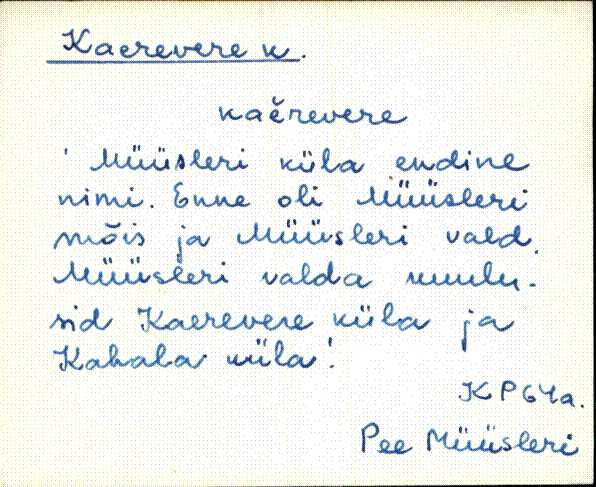 Kaerevere k.
kaĕrevere
' Müüsleri küla endine
nimi. Enne oli Müüsleri
mõis ja Müüsleri vald.
Müüsleri valda kuulu-
sid Kaerevere küla ja
Kahala küla.'
KP 64a.
Pee Müüsleri